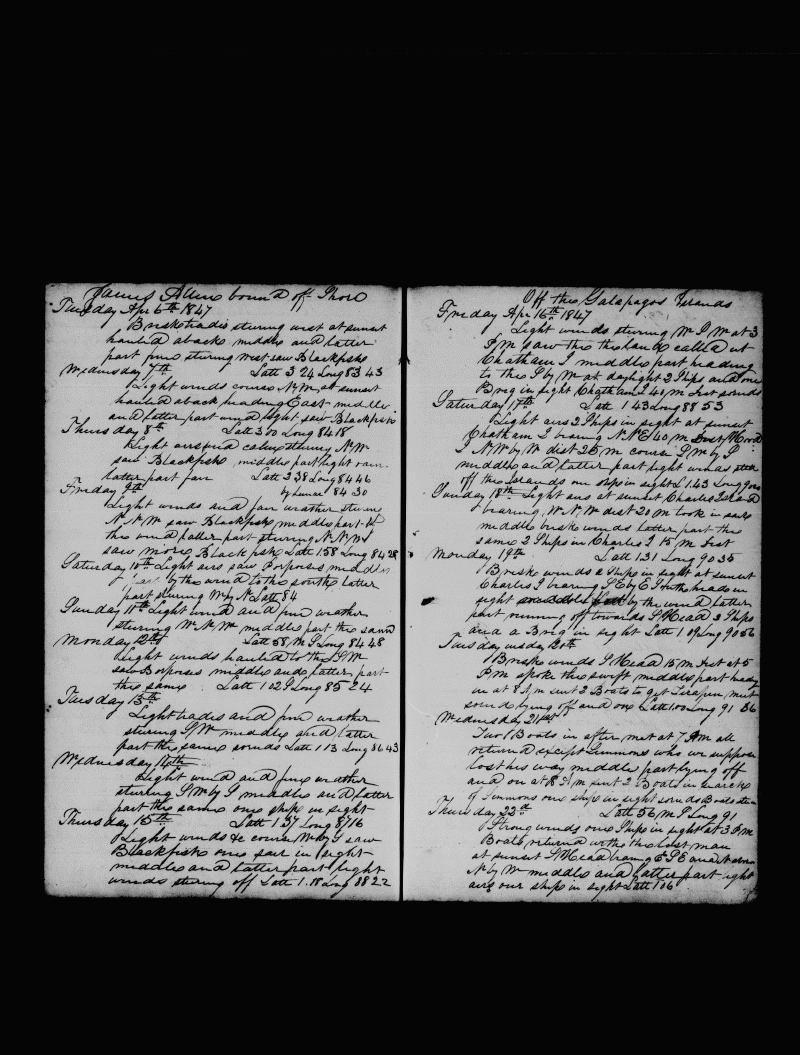 James Allen bound off Shore
Tuesday Apr 6th 1847
Brisk trades stering west at sunset
hauled aback middle and latter
part fine stering west saw Blackfish
Wednesday 7th Latt 3 24 Long 83 43
Light winds course N W at sunset
hauled aback heading East middle
and latter part wind light saw Blackfish
Thursday 8th Latt 3 00 Long 84 18
Light airs and calm stering N W
saw Blackfish middle part light rain
latter part fair Latt 2 38 Long 84 46
Friday 9th by lunar 84 30
Light winds and fair weather stering
N N W saw Blackfish middle part by
the wind latter part stering N N W
saw more Blackfish Latt 1 58 Long 84 28
Saturday 10th Light airs saw Porpoises middle
part by the wind to the south latter
part stering W by N Latt 84
Sunday 11th Light wind and fine weather
stering W N W middle part the same
Monday 12th Latt 58 M S Long 84 48
Light winds hauled to the S W
saw Porpoises middle and latter part
the same Latt 1 02 S Long 85 24
Tuesday 13th
Light trades and fine weather
stering S W middle and latter
part the same sounds Latt 1 13 Long 86 43
Wednesday 14th
Light wind and fine weather
stering S W by S middle and latter
part the same one ship in sight
Thursday 15th Latt 1 37 Long 87 16
Light winds &c course W by S saw
Blackfish one sail in sight
middle and latter part light
winds stering off Latt 1.18 Long 88 22
Off the Galapagos Islands
Friday Apr 16th 1847
Light winds stering W S W at 3
P M saw the the land called it
Chatham I middle part heading
to the S by W at daylight 2 Ships and one
Brig in sight Chatham I 40 m Dist sounds
Saturday 17th Latt 1 43 Long 88 53
Light airs 2 Ships in sight at sunset
Chatham I bearing N N E 40 m Dist Hood
I N W by W dist 25 m course S W by S
middle and latter part light winds
off the Islands one ship in sight L 1.43 Long
Sunday 18th Light airs at sunset Charles Island
bearing W N W dist 20 m took in sail
middle brisk winds latter part the
same 2 Ships in Charles I 15 m Dist
Monday 19th Latt 1 31 Long 90 35
Brisk winds 2 Ships in sight at sunset
Charles I bearing S E by E South head in
sight by the wind latter
part running off towards S Head 3 Ships
and a Brig in sight Latt 1 09 Long 90 56
Tuesday 20th
Brisk winds S Head 15 m Dist at 5
P M spoke the Swift middle part heading
in at 8 A m sent 2 Boats to get Terapin next
sound lying off and on Latt 1 00 Long 91 36
Wednesday 21st
Two Boats in after meat at 7 P M all
returned except Simmons who we suppose
lost his way middle part lying off
and on at 8 A m sent 2 Boats in search
of Simmons one ship in sight sounds Boats
Thursday 22d Latt 56 m S Long 91
Strong winds one Ship in sight at 3 P m
Boats returned with the lost man
at sunset S Head bearing E S E
N by W middle and latter part light
airs one ship in sight Latt 1 06